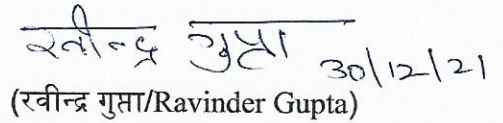 रवीन्द्र गुप्ता 30/12/21
(रवीन्द्र गुप्ता/Ravinder Gupta)